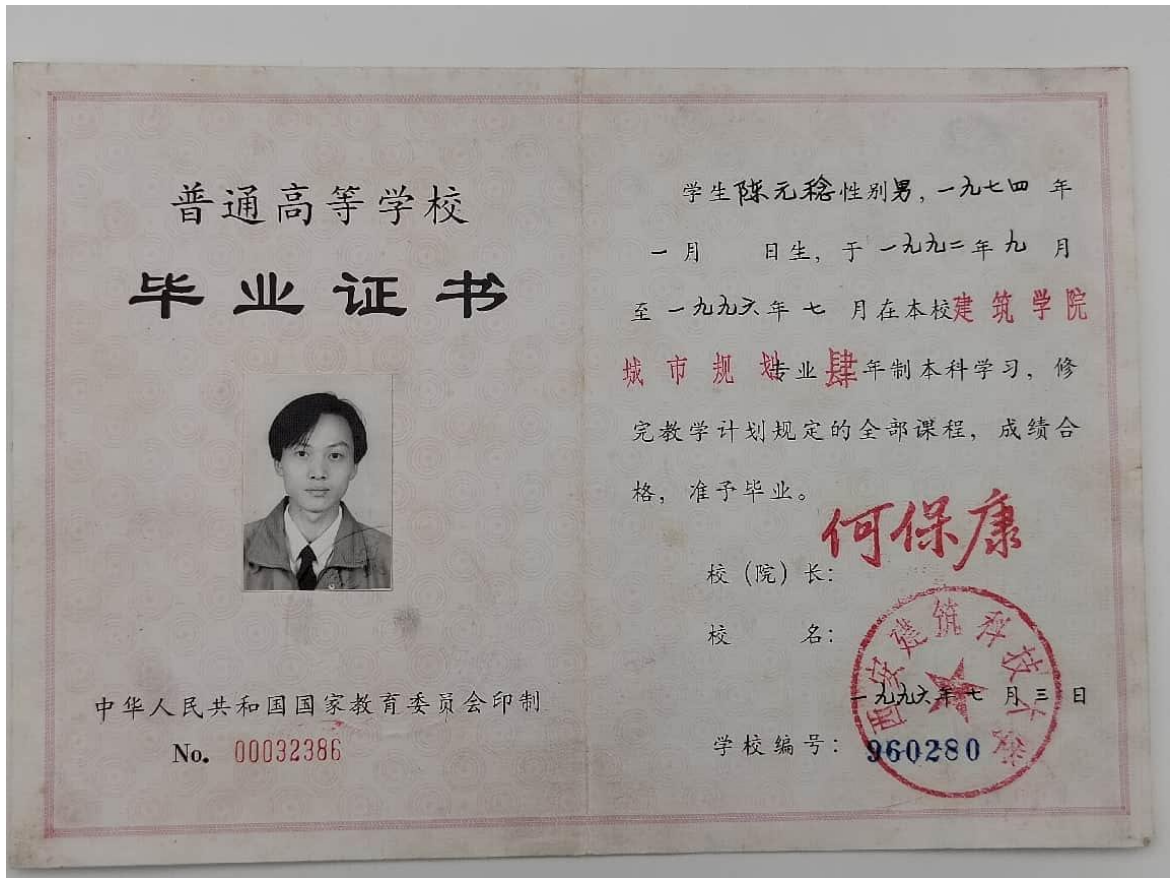 普通高等学校
毕业证书
中华人民共和国国家教育委员会印制
No. 00032386
学生陈元稔性别男，一九七四 年
一 月 日生，于 一九九二年九 月
至 一九九六年 七 月在本校建筑学院
城市规划专业肆年制本科学习，修
完教学计划规定的全部课程，成绩合
格，准予毕业。
何保康
校（院）长：
校 名：
西安建筑科技大学
一九九六年七 月三 日
学校编号：960280